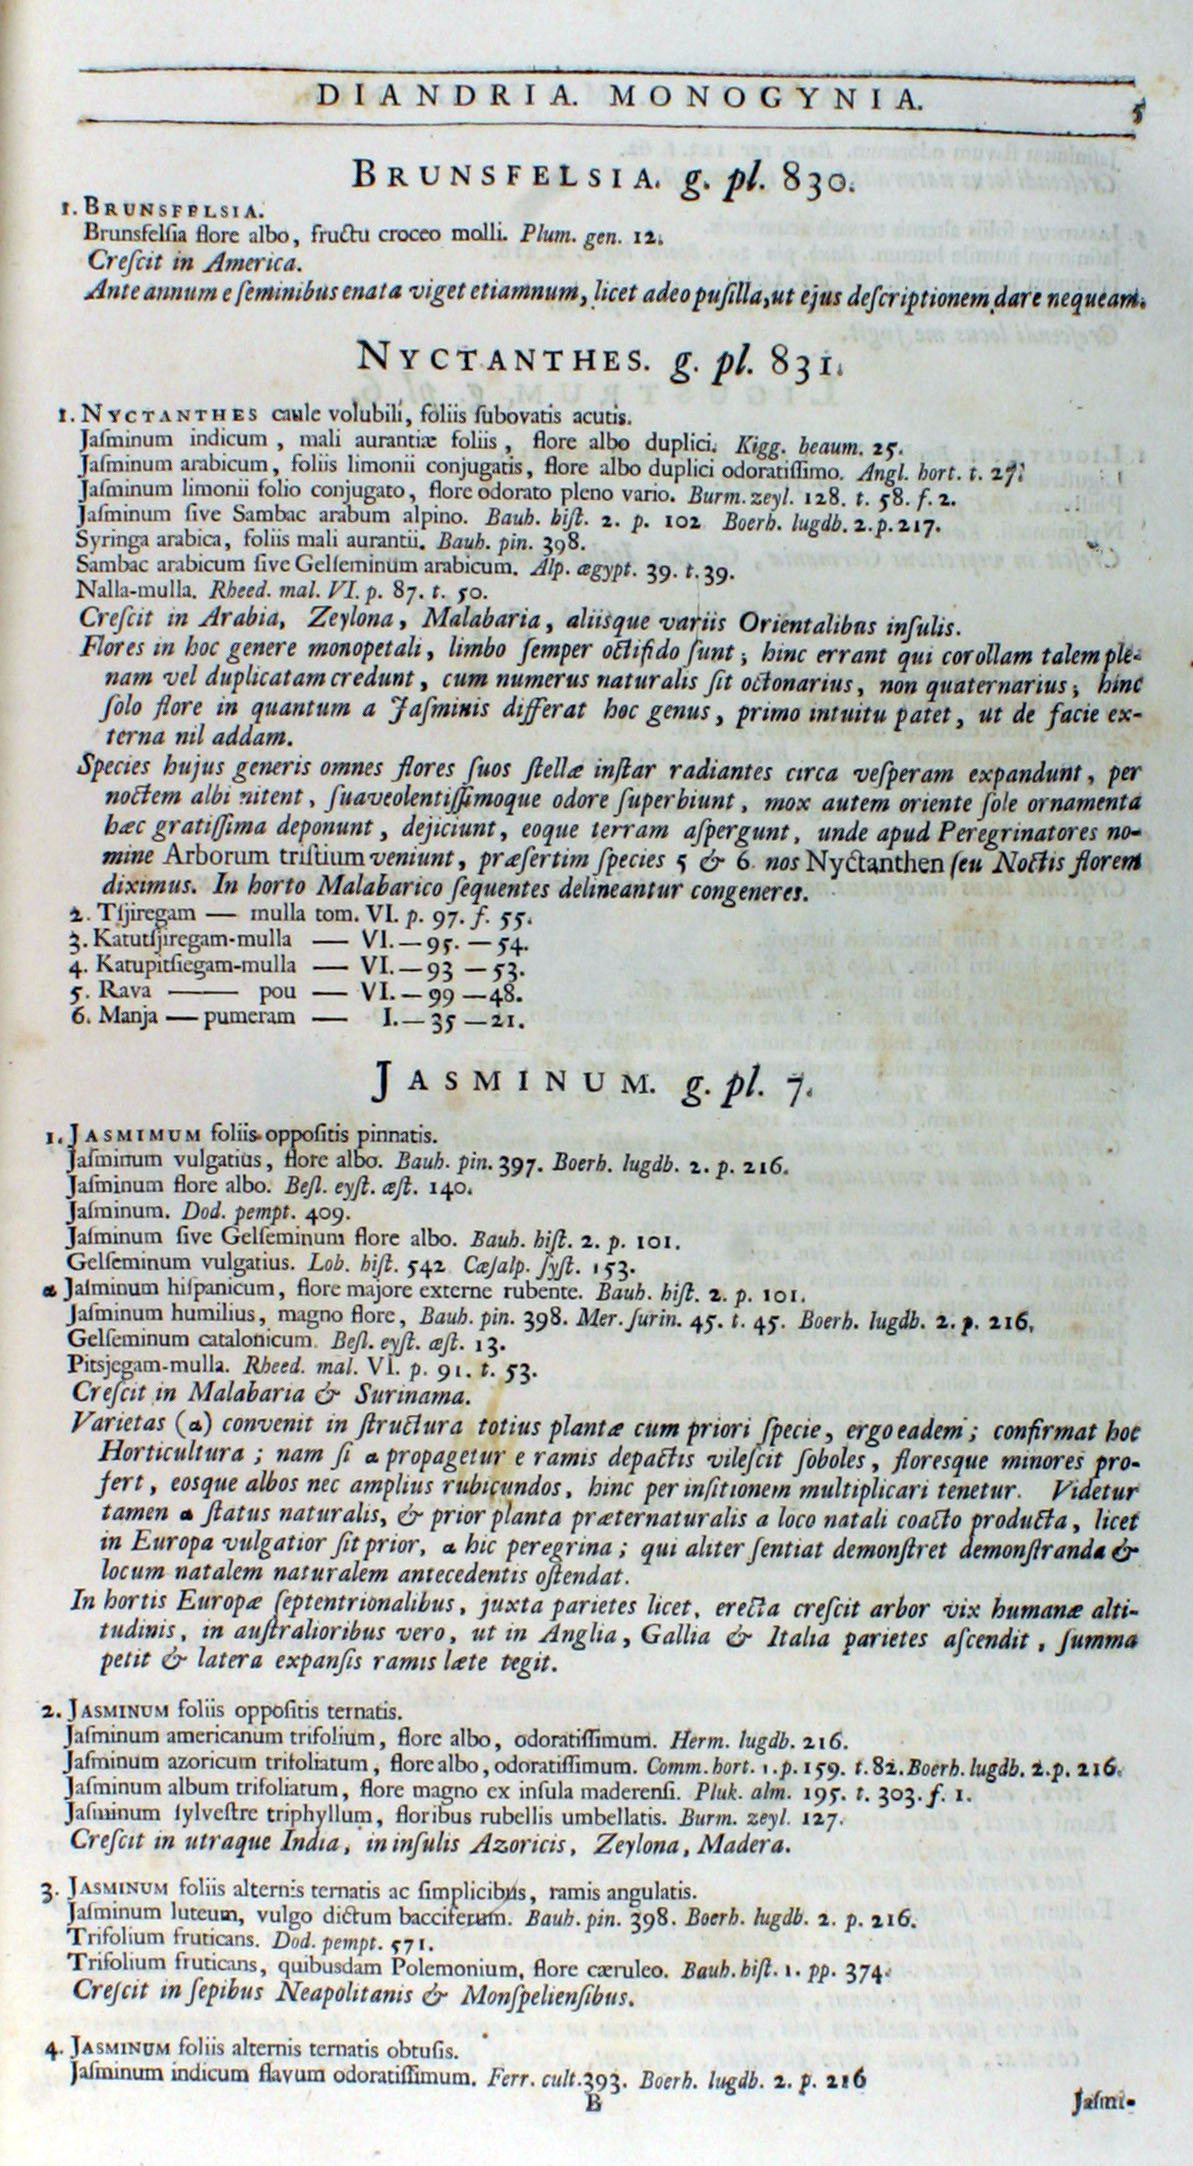 DIANDRIA. MONOGYNIA. 5
BRUNSFELSIA. g. pl. 830.
1. BRUNSFELSIA.
Brunsfelſia flore albo, fructu croceo molli. Plum. gen. 12.
Creſcit in America.
Ante annum e ſeminibus enata viget etiamnum, licet adeo puſilla, ut ejus deſcriptionem dare nequeam.
NYCTANTHES. g. pl. 831.
1. NYCTANTHES caule volubili, foliis ſubovatis acutis.
Jaſminum indicum, mali aurantiæ foliis, flore albo duplici. Kigg. beaum. 25.
Jaſminum arabicum, foliis limonii conjugatis, flore albo duplici odoratiſſimo. Angl. hort. t. 27.
Jaſminum limonii folio conjugato, flore odorato pleno vario. Burm. zeyl. 128. t. 58. f. 2.
Jaſminum ſive Sambac arabum alpino. Bauh. hiſt. 2. p. 102 Boerh. lugdb. 2. p. 217.
Syringa arabica, foliis mali aurantii. Bauh. pin. 398.
Sambac arabicum ſive Gelſeminum arabicum. Alp. ægypt. 39. t. 39.
Nalla-mulla. Rheed. mal. VI. p. 87. t. 50.
Creſcit in Arabia, Zeylona, Malabaria, aliisque variis Orientalibus inſulis.
Flores in hoc genere monopetali, limbo ſemper octifido ſunt; hinc errant qui corollam talem ple-
nam vel duplicatam credunt, cum numerus naturalis ſit octonarius, non quaternarius; hinc
ſolo flore in quantum a Jaſminis differat hoc genus, primo intuitu patet, ut de facie ex-
terna nil addam.
Species hujus generis omnes flores ſuos ſtellæ inſtar radiantes circa veſperam expandunt, per
noctem albi nitent, ſuaveolentiſſimoque odore ſuperbiunt, mox autem oriente ſole ornamenta
hæc gratiſſima deponunt, dejiciunt, eoque terram aſpergunt, unde apud Peregrinatores no-
mine Arborum triſtium veniunt, præſertim ſpecies 5 & 6. nos Nyctanthen ſeu Noctis florem
diximus. In horto Malabarico ſequentes delineantur congeneres.
2. Tſjiregam — mulla tom. VI. p. 97. f. 55.
3. Katutſjiregam-mulla — VI. — 95. — 54.
4. Katupitſiegam-mulla — VI. — 93 — 53.
5. Rava —— pou — VI. — 99 — 48.
6. Manja — pumeram — I. — 35 — 21.
JASMINUM. g. pl. 7.
1. JASMIMUM foliis oppoſitis pinnatis.
Jaſminum vulgatius, flore albo. Bauh. pin. 397. Boerh. lugdb. 2. p. 216.
Jaſminum flore albo. Beſl. eyſt. æſt. 140.
Jaſminum. Dod. pempt. 409.
Jaſminum ſive Gelſeminum flore albo. Bauh. hiſt. 2. p. 101.
Gelſeminum vulgatius. Lob. hiſt. 542 Cæſalp. ſyſt. 153.
α Jaſminum hiſpanicum, flore majore externe rubente. Bauh. hiſt. 2. p. 101.
Jaſminum humilius, magno flore, Bauh. pin. 398. Mer. ſurin. 45. t. 45. Boerh. lugdb. 2. p. 216.
Gelſeminum catalonicum. Beſl. eyſt. æſt. 13.
Pitsjegam-mulla. Rheed. mal. VI. p. 91. t. 53.
Creſcit in Malabaria & Surinama.
Varietas (α) convenit in ſtructura totius plantæ cum priori ſpecie, ergo eadem; confirmat hoc
Horticultura; nam ſi α propagetur e ramis depactis vileſcit ſoboles, floresque minores pro-
fert, eosque albos nec amplius rubicundos, hinc per inſitionem multiplicari tenetur. Videtur
tamen α ſtatus naturalis, & prior planta præternaturalis a loco natali coacto producta, licet
in Europa vulgatior ſit prior, α hic peregrina; qui aliter ſentiat demonſtret demonſtranda &
locum natalem naturalem antecedentis oſtendat.
In hortis Europæ ſeptentrionalibus, juxta parietes licet, erecta creſcit arbor vix humanæ alti-
tudinis, in auſtralioribus vero, ut in Anglia, Gallia & Italia parietes aſcendit, ſumma
petit & latera expanſis ramis læte tegit.
2. JASMINUM foliis oppoſitis ternatis.
Jaſminum americanum trifolium, flore albo, odoratiſſimum. Herm. lugdb. 216.
Jaſminum azoricum trifoliatum, flore albo, odoratiſſimum. Comm. hort. 1. p. 159. t. 82. Boerh. lugdb. 2. p. 216.
Jaſminum album trifoliatum, flore magno ex inſula maderenſi. Pluk. alm. 195. t. 303. f. 1.
Jaſminum ſylveſtre triphyllum, floribus rubellis umbellatis. Burm. zeyl. 127.
Creſcit in utraque India, in inſulis Azoricis, Zeylona, Madera.
3. JASMINUM foliis alternis ternatis ac ſimplicibus, ramis angulatis.
Jaſminum luteum, vulgo dictum bacciferum. Bauh. pin. 398. Boerh. lugdb. 2. p. 216.
Trifolium fruticans. Dod. pempt. 571.
Trifolium fruticans, quibusdam Polemonium, flore cæruleo. Bauh. hiſt. 1. pp. 374.
Creſcit in ſepibus Neapolitanis & Monſpelienſibus.
4. JASMINUM foliis alternis ternatis obtuſis.
Jaſminum indicum flavum odoratiſſimum. Ferr. cult. 393. Boerh. lugdb. 2. p. 216
B Jaſmi-